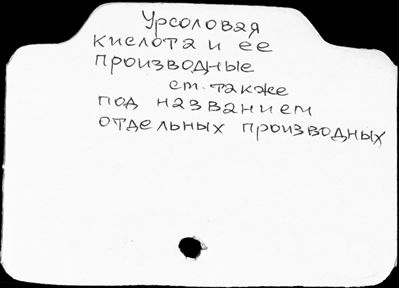 Урсоловая
кислота и ее
производные
см. также
под названием
отдельных производных